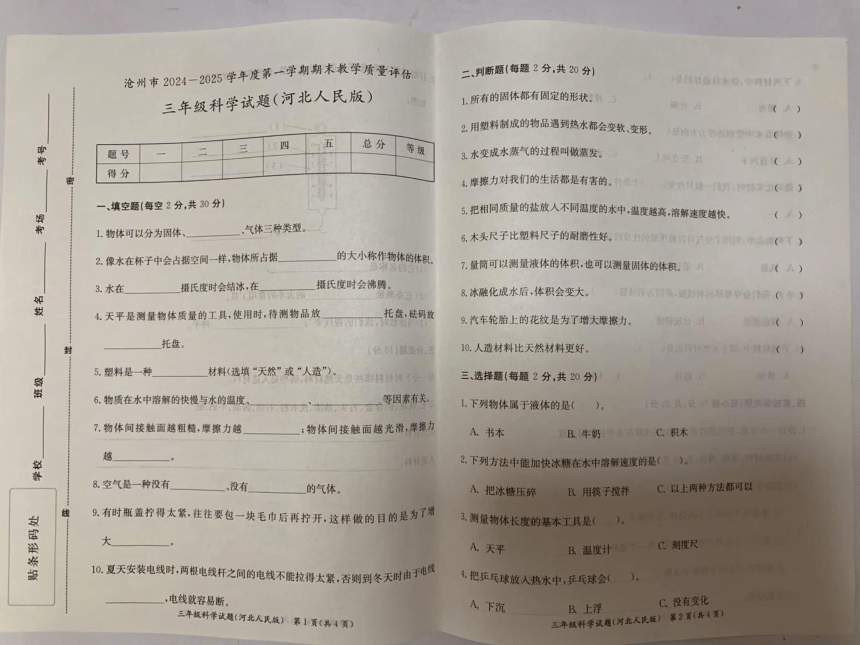 沧州市2024—2025学年度第一学期期末教学质量评估
三年级科学试题(河北人民版)
题号 一 二 三 四 五 总分 等级
得分
一、填空题(每空2分,共30分)
1.物体可以分为固体、________、气体三种类型。
2.像水在杯子中会占据空间一样,物体所占据________的大小称作物体的体积。
3.水在________摄氏度时会结冰,在________摄氏度时会沸腾。
4.天平是测量物体质量的工具,使用时,待测物品放________托盘,砝码放
________托盘。
5.塑料是一种________材料(选填“天然”或“人造”)。
6.物质在水中溶解的快慢与水的温度、________、________等因素有关。
7.物体间接触面越粗糙,摩擦力越________;物体间接触面越光滑,摩擦力
越________。
8.空气是一种没有________、没有________的气体。
9.有时瓶盖拧得太紧,往往要包一块毛巾后再拧开,这样做的目的是为了增
大________。
10.夏天安装电线时,两根电线杆之间的电线不能拉得太紧,否则到冬天时由于电线
________,电线就容易断。
三年级科学试题(河北人民版) 第1页(共4页)
学校________ 班级________ 姓名________ 考场________ 考号________
密
封
线
贴条形码处
二、判断题(每题2分,共20分)
1.所有的固体都有固定的形状。 ( )
2.用塑料制成的物品遇到热水都会变软、变形。 ( )
3.水变成水蒸气的过程叫做蒸发。 ( )
4.摩擦力对我们的生活都是有害的。 ( )
5.把相同质量的盐放入不同温度的水中,温度越高,溶解速度越快。 ( )
6.木头尺子比塑料尺子的耐磨性好。 ( )
7.量筒可以测量液体的体积,也可以测量固体的体积。 ( )
8.冰融化成水后,体积会变大。 ( )
9.汽车轮胎上的花纹是为了增大摩擦力。 ( )
10.人造材料比天然材料更好。 ( )
三、选择题(每题2分,共20分)
1.下列物体属于液体的是( )。
A. 书本 B. 牛奶 C. 积木
2.下列方法中能加快冰糖在水中溶解速度的是( )。
A. 把冰糖压碎 B. 用筷子搅拌 C. 以上两种方法都可以
3.测量物体长度的基本工具是( )。
A. 天平 B. 温度计 C. 刻度尺
4.把乒乓球放入热水中,乒乓球会( )。
A. 下沉 B. 上浮 C. 没有变化
三年级科学试题(河北人民版) 第2页(共4页)